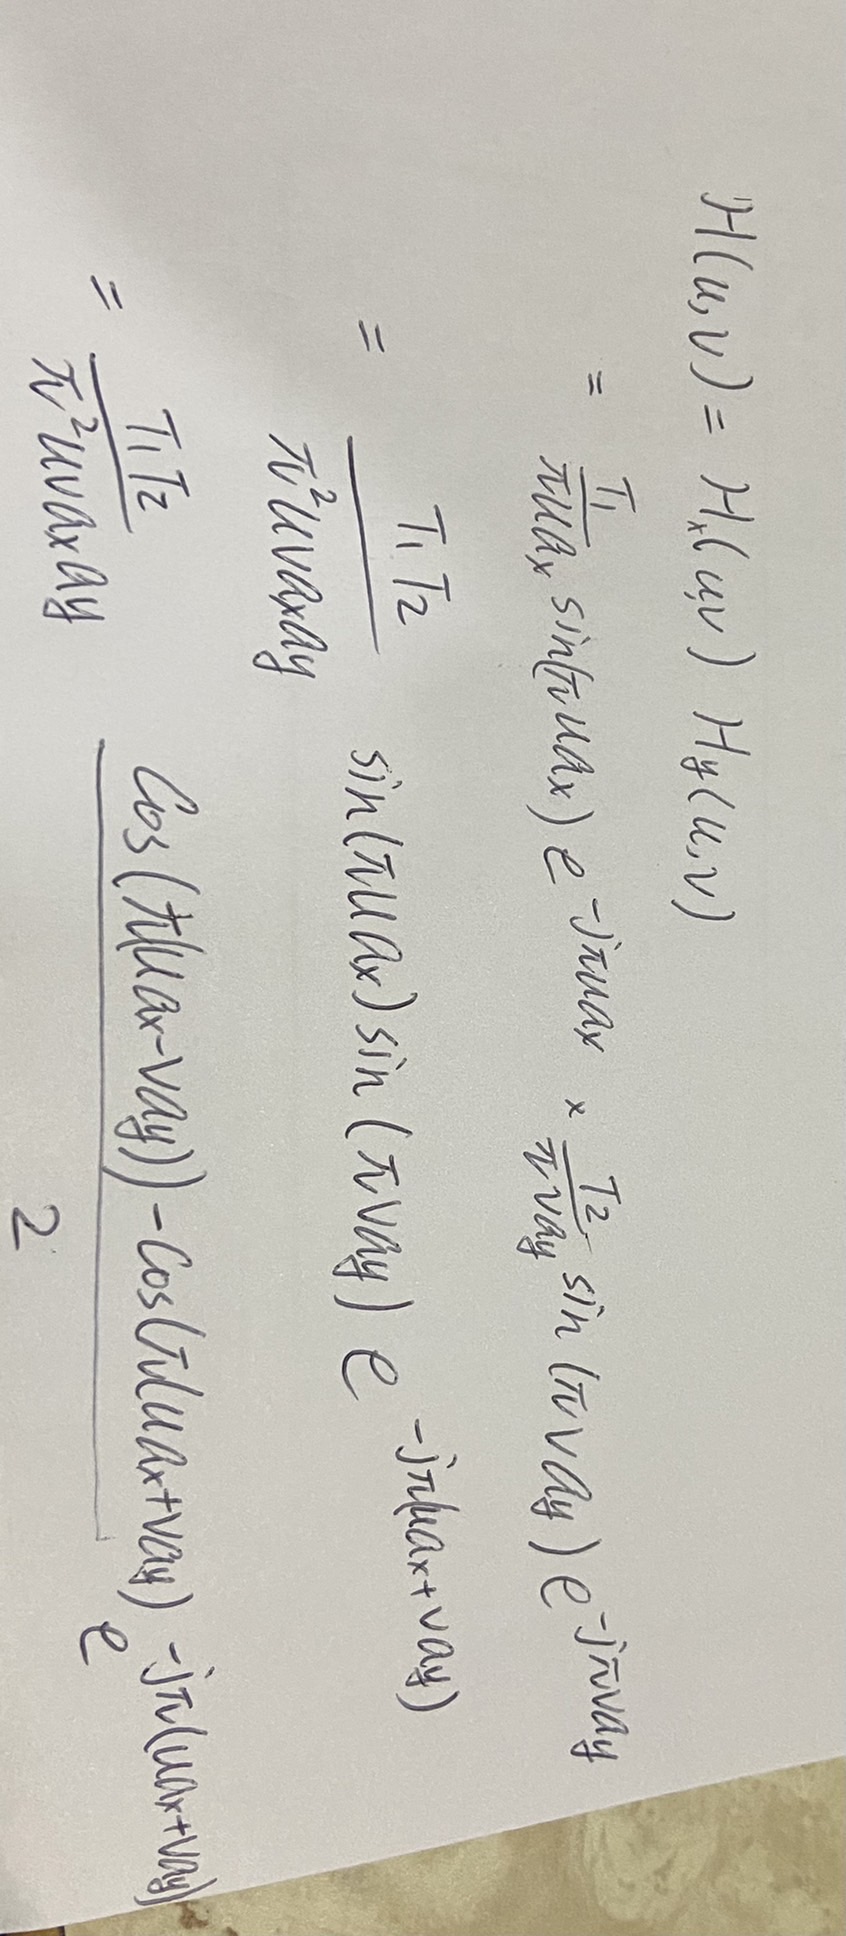 H(u,v) = Hₓ(u,v) Hy(u,v)
= T₁/(πuaₓ) sin(πuaₓ) e^(-jπuaₓ) × T₂/(πvay) sin(πvay) e^(-jπvay)
= T₁T₂/(π²uvaₓay) sin(πuaₓ) sin(πvay) e^(-jπ(uaₓ+vay))
= T₁T₂/(π²uvaₓay) (cos(π(uaₓ-vay)) - cos(π(uaₓ+vay))/2 e^(-jπ(uaₓ+vay))